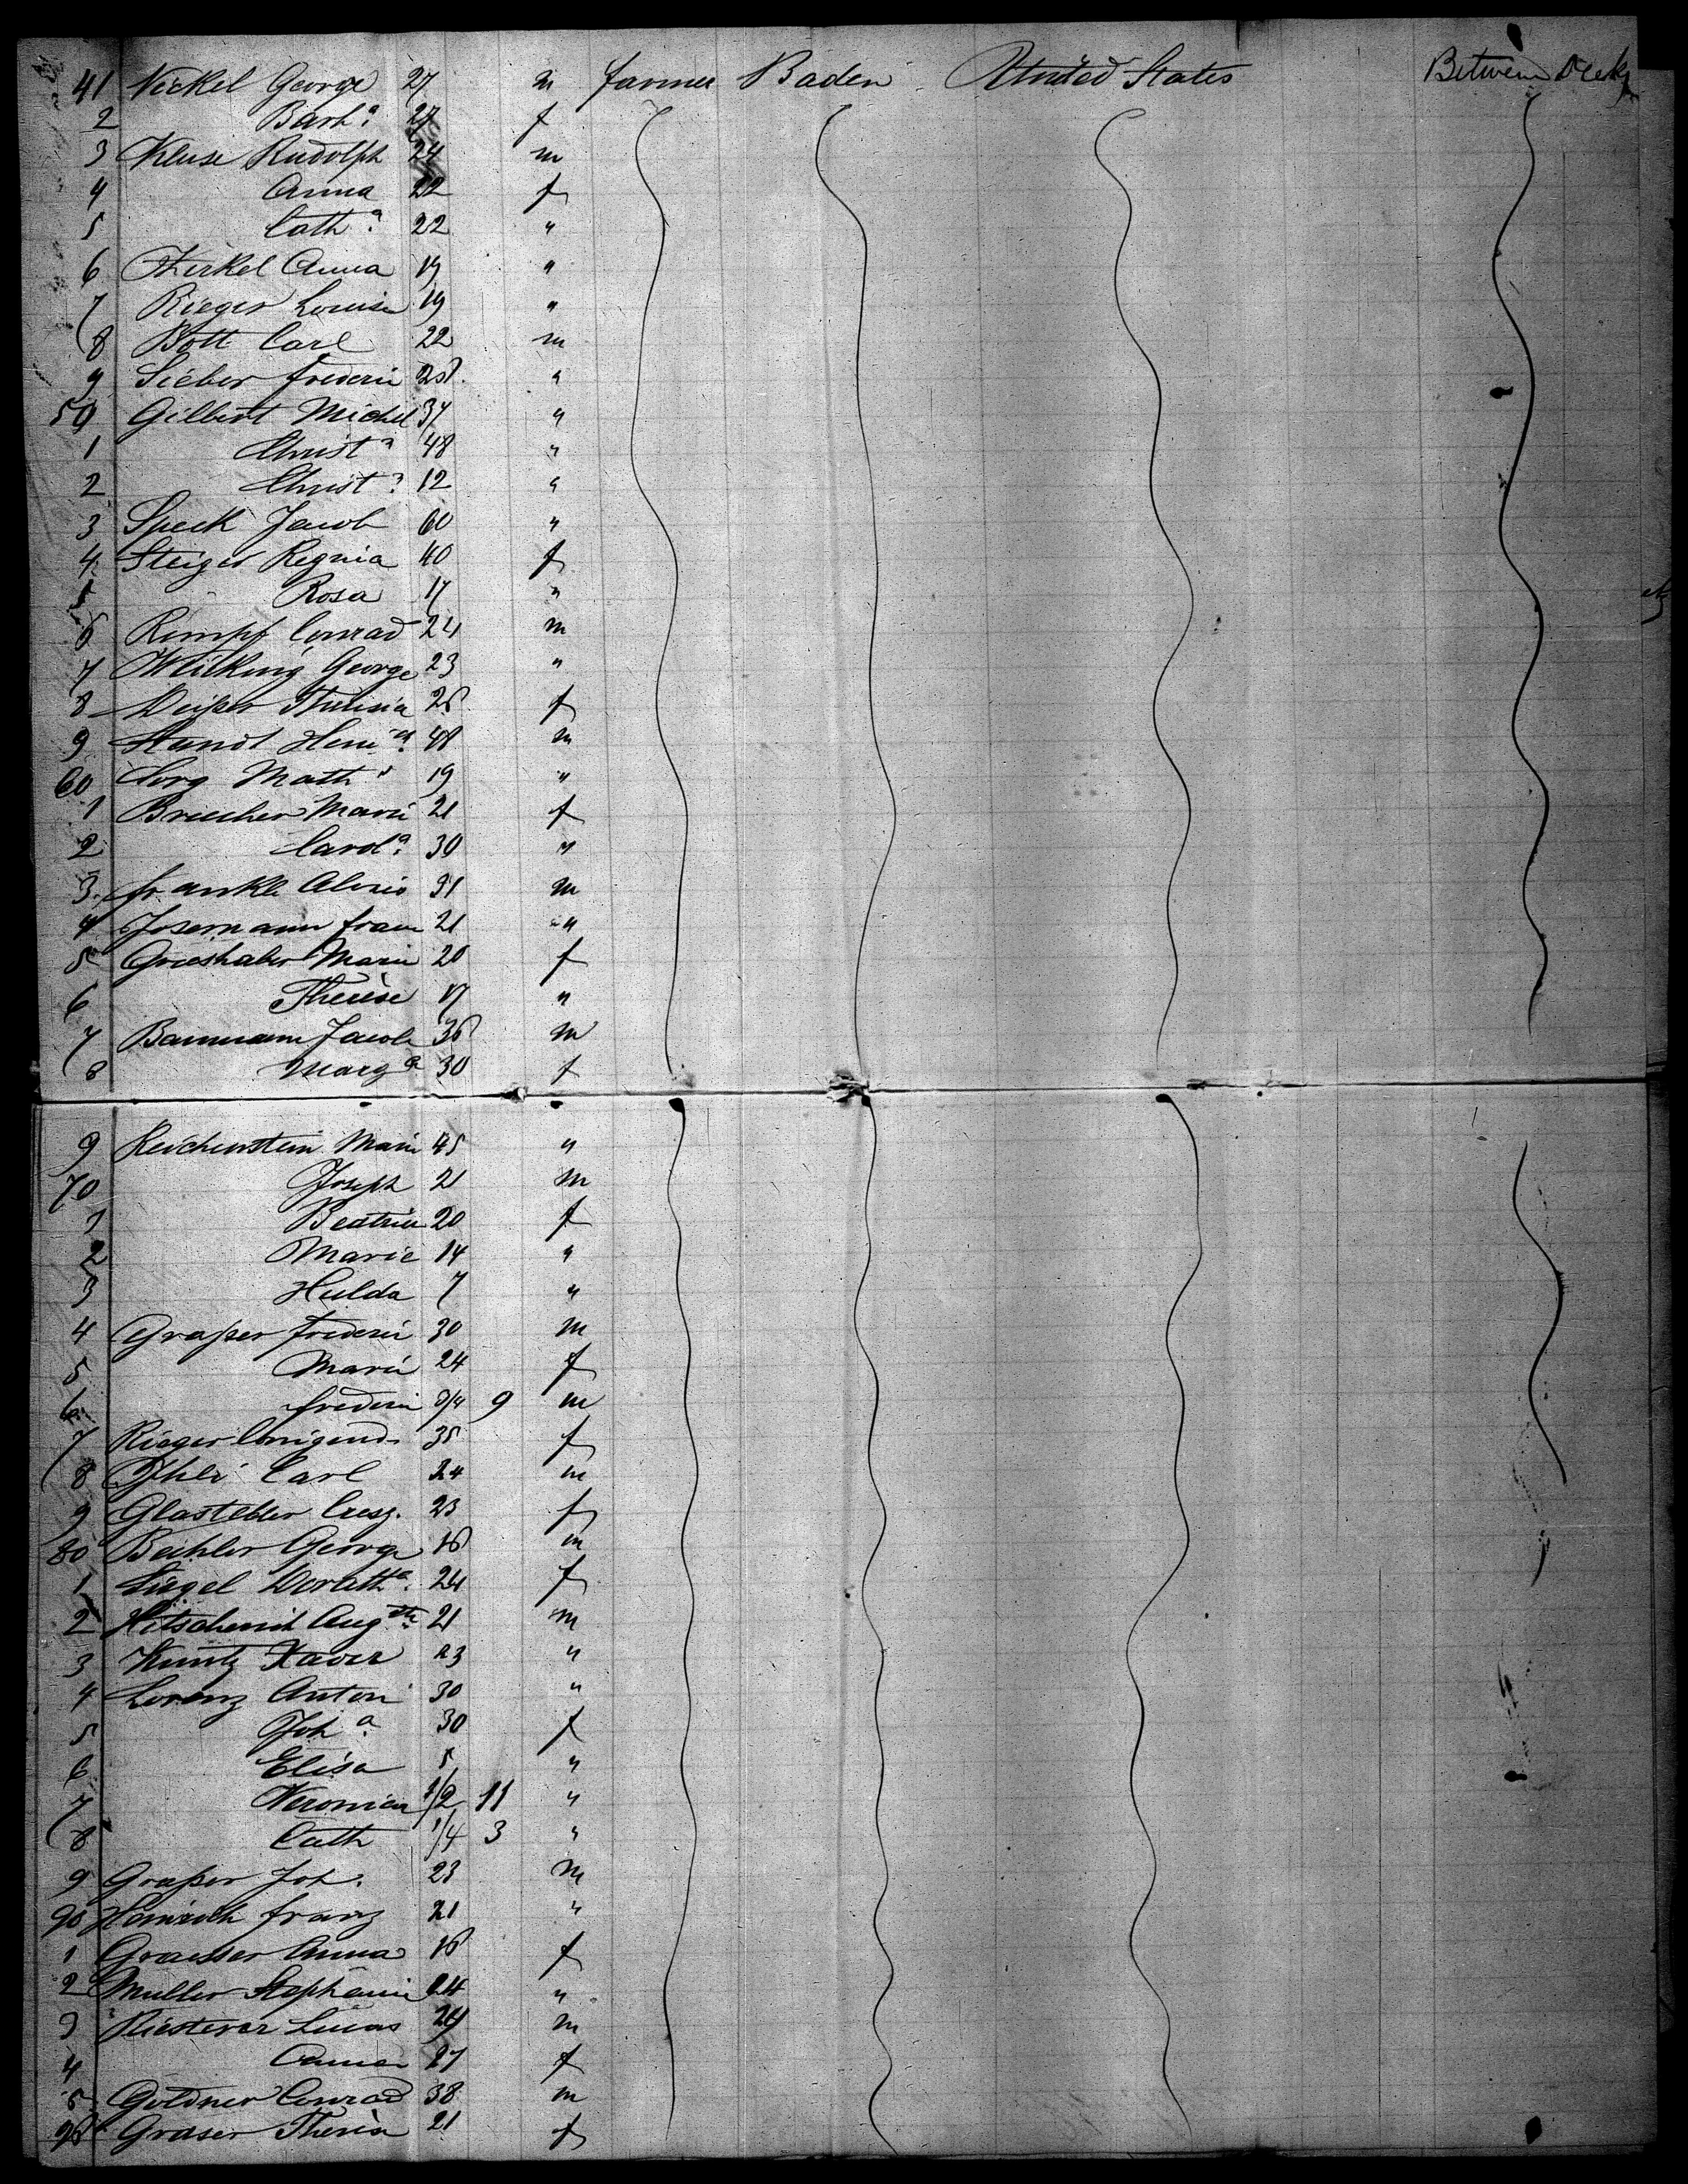 41 Nickel George 27 m farmer Baden United States Between Decks
2 Barb.ª 27 f
3 Kluse Rudolph 24 m
4 Anna 22 f
5 Cath.ª 22 "
6 Anna 19 "
7 Rieger Louise 19 "
8 Bott Carl 22 m
9 Sieber frederic 28 "
50 Gilbert Michel 37 "
1 Christ.n 48 "
2 Christ.n 12 "
3 Speck Jacob 60 "
4 Steiger Regina 40 f
5 Rosa 17 "
6 Rimpf Conrad 24 m
7 George 23 "
8 Theresia 26 f
9 48 m
60 Sorg Math.s 19 "
1 Brucher Marie 21 f
2 Carol.ª 30 "
3 frankle Alois 31 m
4 Josemann 21 "
5 Grieshaber Marie 20 f
6 Therese 17 "
7 Baumann Jacob 36 m
8 Marg.ª 30 f
9 Reichenstein Marie 45 "
70 Joseph 21 m
1 Beatrice 20 f
2 Marie 14 "
3 Hulda 7 "
4 Graßer frederic 30 m
5 Marie 24 f
6 frederic 3/4 9 m
7 Rieger 35 f
8 Carl 24 m
9 Cresz. 23 f
80 Beihler George 16 m
1 Siegel Doroth.ª 24 f
2 21 m
3 Kuntz Xaver 23 "
4 Lorenz Anton 30 "
5 Joh.ª 30 f
6 Elisa 5 "
7 Veronica 1/2 11 "
8 Cath 1/4 3 "
9 Graßer Joh. 23 m
90 Heinrich franz 21 "
1 Graesser Anna 16 f
2 Muller Stephanie 24 "
3 Riesterer Lucas 29 m
4 Anna 27 f
5 Goldner Conrad 38 m
96 Graser Theresa 21 f